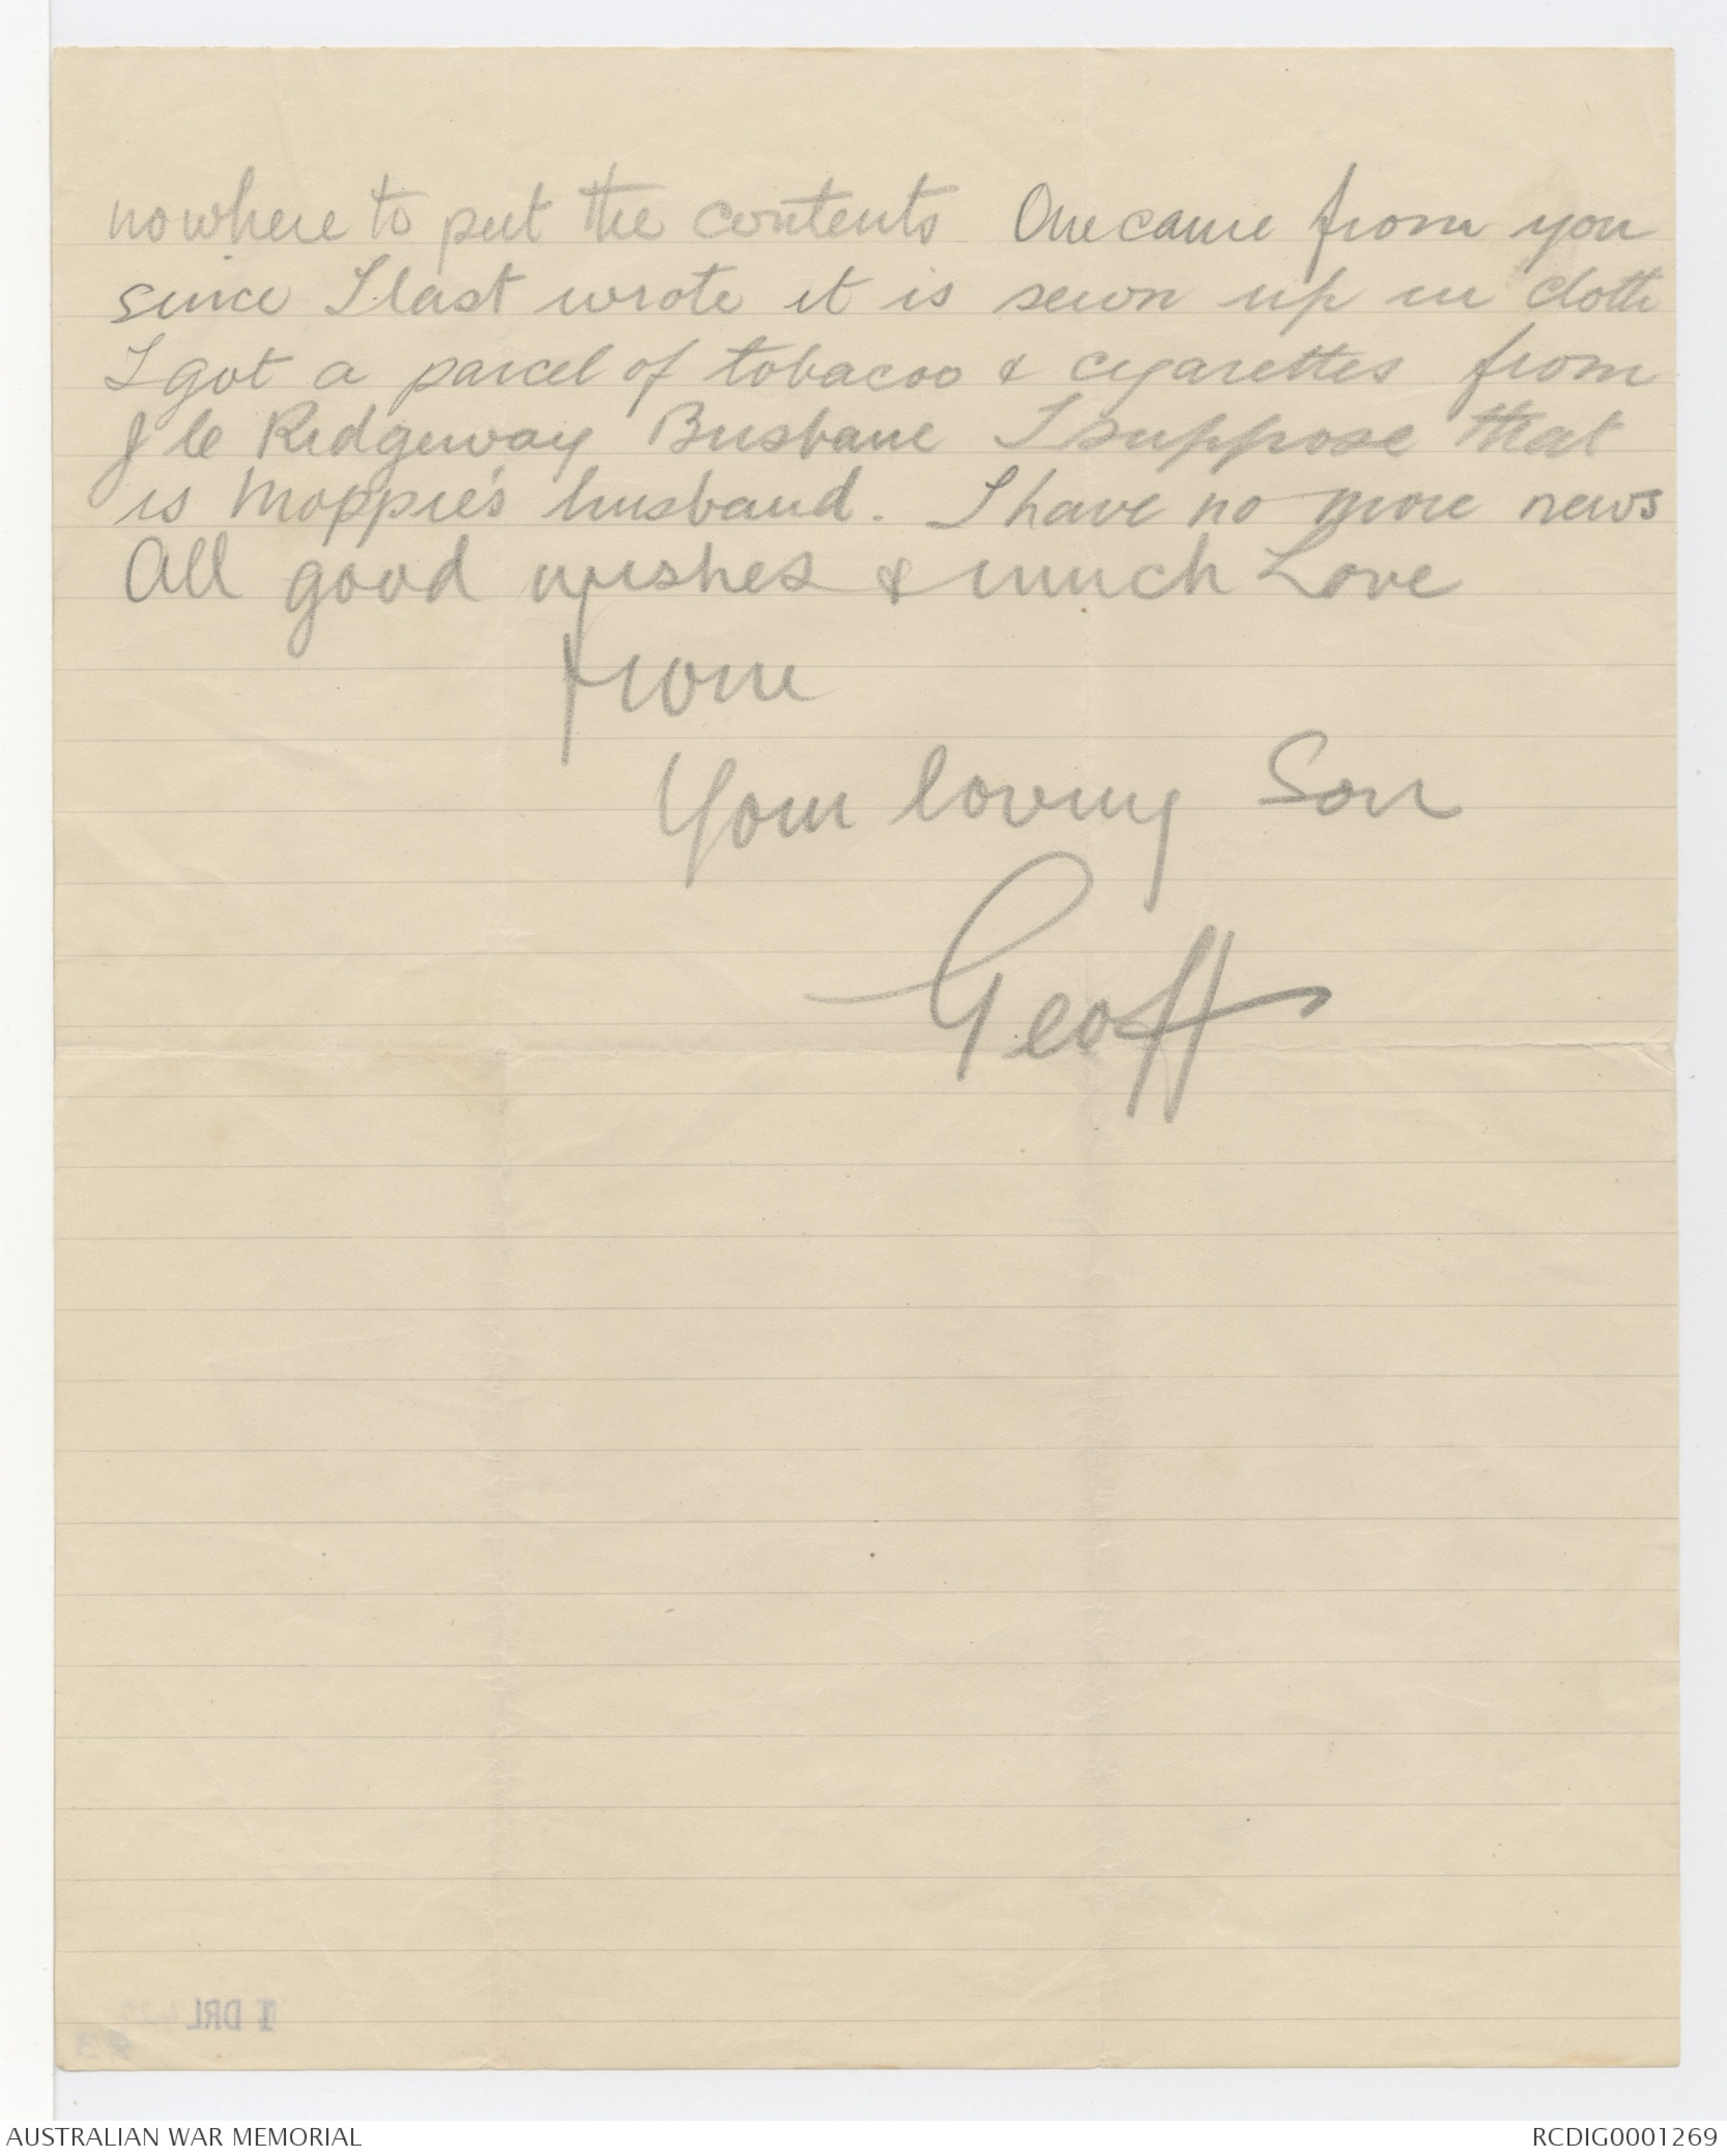 nowhere to put the contents One came from you
since I last wrote it is sewn up in cloth
I got a parcel of tobacoo & cigarettes from
J C Ridgeway Brisbane I suppose that
is Moppie's husband. I have no more news
All good wishes & much Love
from
Your loving Son
Geoff
1 DRL
AUSTRALIAN WAR MEMORIAL
RCDIG0001269